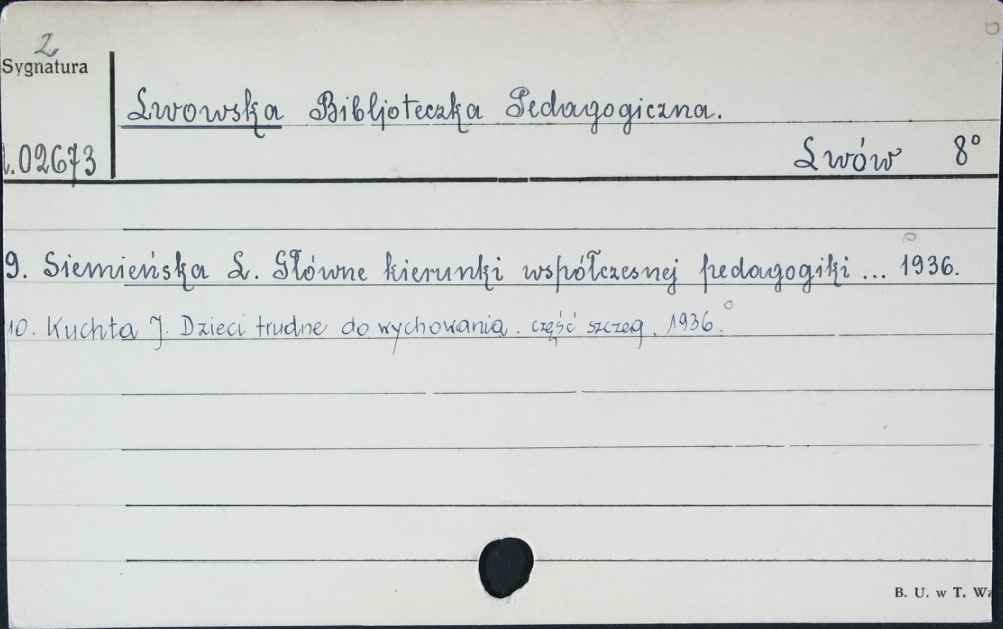 2
Sygnatura
Lwowska Bibljoteczka Pedagogiczna.
.02673
Lwów 8°
9. Siemieńska L. Główne kierunki współczesnej pedagogiki ... 1936.
10. Kuchta J. Dzieci trudne do wychowania. część szczeg. 1936.
B. U. w T. W